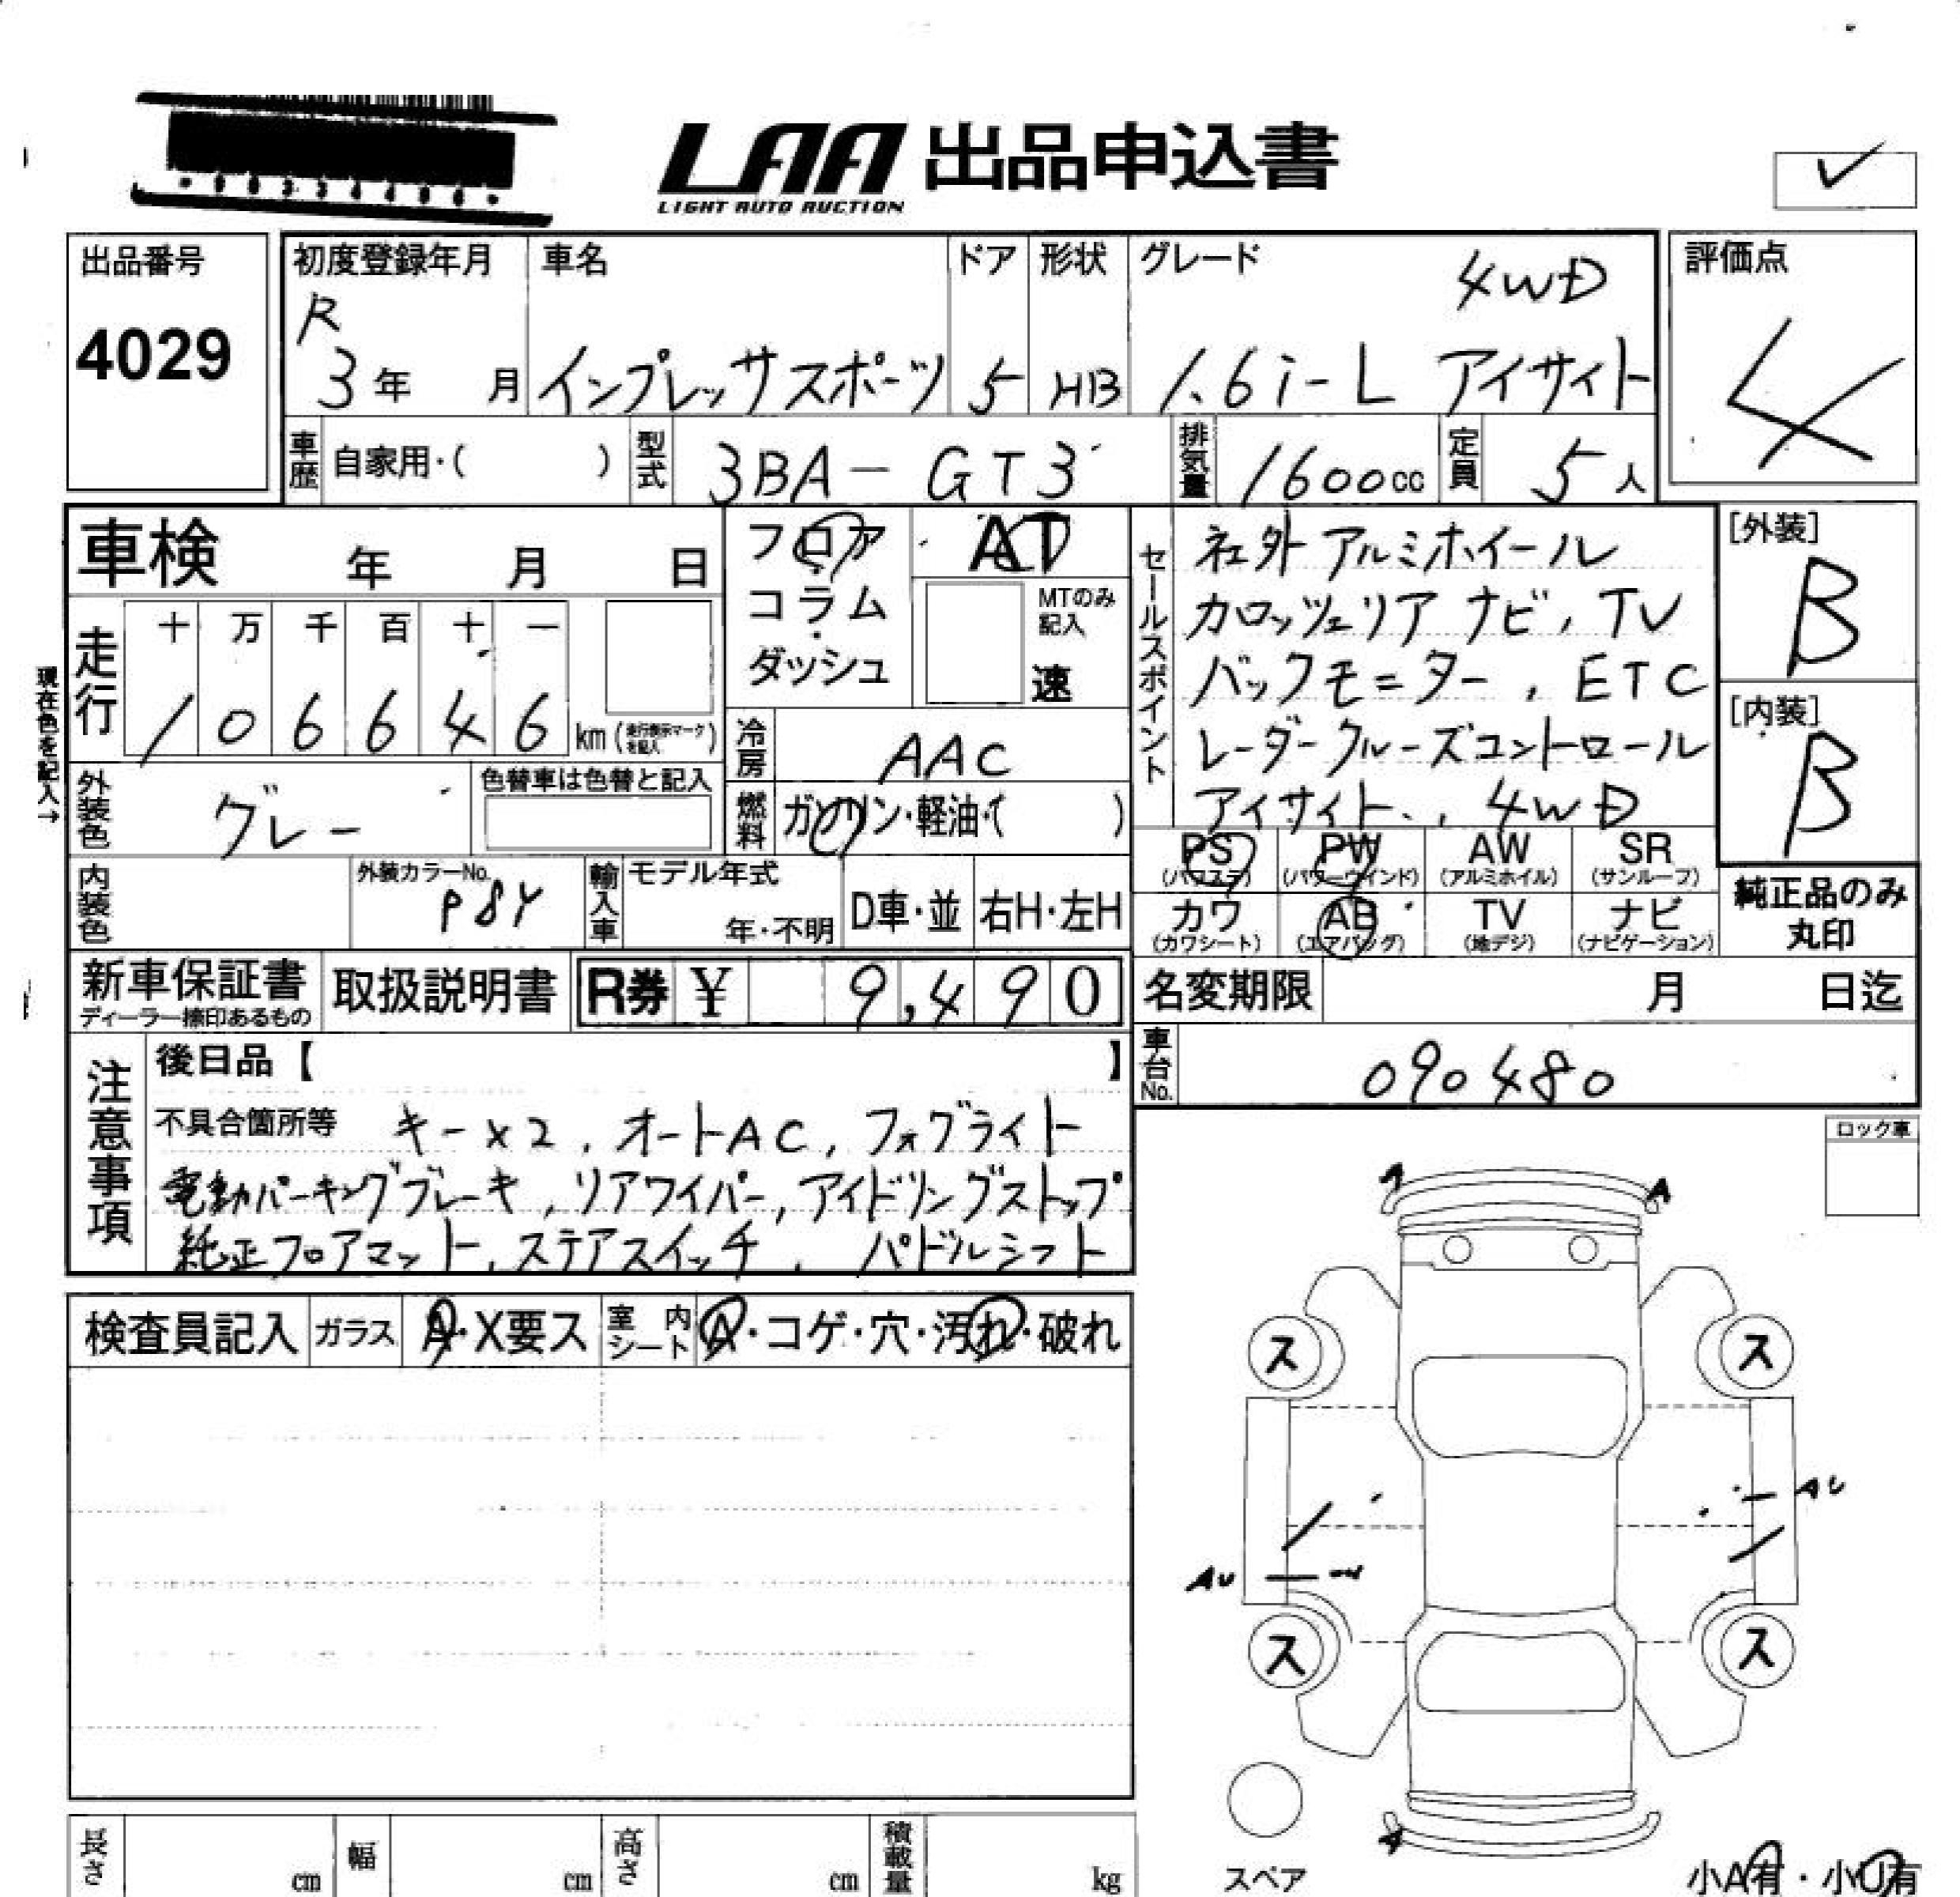 LAA 出品申込書
LIGHT AUTO AUCTION
出品番号
4029
初度登録年月
R
3年 月
車名
インプレッサスポーツ
ドア
5
形状
HB
グレード
4WD
1.6i-L アイサイト
評価点
4
車歴 自家用・( )
型式 3BA-GT3
排気量 1600cc
定員 5人
車検 年 月 日
フロア・コラム・ダッシュ
AT
MTのみ記入
速
セールスポイント
社外アルミホイール
カロッツェリアナビ, TV
バックモニター, ETC
レーダークルーズコントロール
アイサイト, 4WD
[外装]
B
[内装]
B
現在色を記入→
走行
十 万 千 百 十 一
1 0 6 6 4 6 km (走行表示マークを記入)
冷房 AAC
外装色 グレー
色替車は色替と記入
燃料 ガソリン・軽油・( )
PS (パワステ)
PW (パワーウインド)
AW (アルミホイル)
SR (サンルーフ)
カワ (カワシート)
AB (エアバッグ)
TV (地デジ)
ナビ (ナビゲーション)
純正品のみ
丸印
内装色
外装カラーNo.
P8Y
輸入車
モデル年式
年・不明
D車・並
右H・左H
新車保証書
ディーラー捺印あるもの
取扱説明書
R券 ¥ 9,490
名変期限 月 日迄
車台No. 090480
注意事項
後日品【 】
不具合箇所等 キー×2, オートAC, フォグライト
電動パーキングブレーキ, リアワイパー, アイドリングストップ
純正フロアマット, ステアスイッチ, パドルシフト
ロック車
検査員記入
ガラス A・X要ス
室内シート A・コゲ・穴・汚れ・破れ
A
ス ス
AU
AU
ス ス
スペア
小A有・小U有
長さ cm
幅 cm
高さ cm
積載量 kg